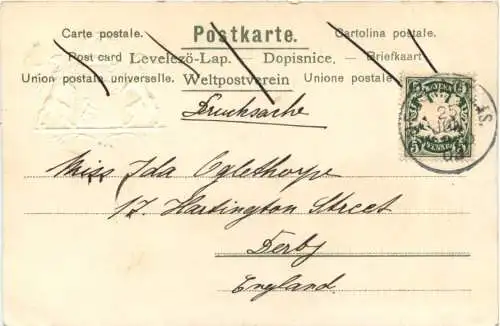 Carte postale. Postkarte. Cartolina postale.
Post card Levelezö-Lap. – Dopisnice. – Briefkaart
Union postale universelle. Weltpostverein Unione postale
Drucksache
5 5
Miss Ida Oglethorpe
17. Hartington Street
Derby
England.